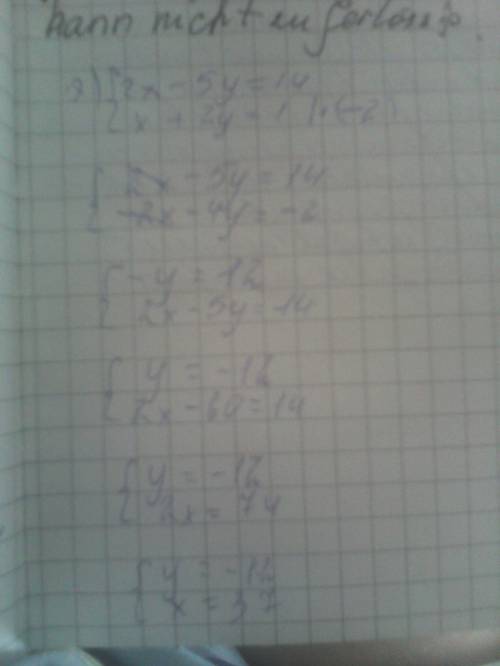 kann nicht
{2x - 5y = 14
{x + 2y = 1 | · (-2)
{2x - 5y = 14
{-2x - 4y = -2
{-y = 12
{2x - 5y = 14
{y = -12
{2x - 60 = 14
{y = -12
{2x = 74
{y = -12
{x = 37